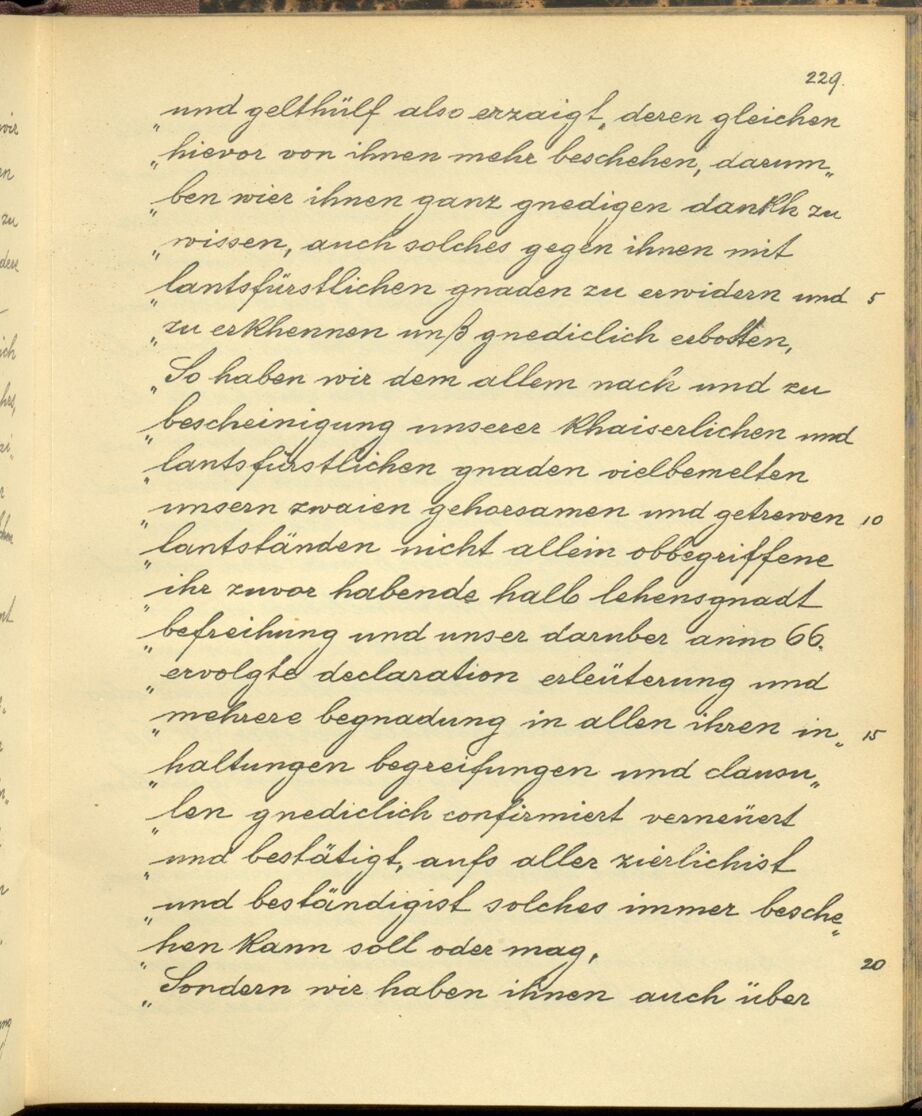 229.
„und gelthülf also erzaigt, deren gleichen
„hievor von ihnen mehr beschehen, darum„
„ben wier ihnen ganz gnedigen dankh zu
„wissen, auch solches gegen ihnen mit
„lantsfürstlichen gnaden zu erwidern und 5
„zu erkhennen unß gnediclich erbotten,
„So haben wir dem allem nach und zu
„bescheinigung unserer khaiserlichen und
„lantsfürstlichen gnaden vielbemelten
„unsern zwaien gehorsamen und getrewen 10
„lantständen nicht allein obbegriffene
„ihr zuvor habende halb lehensgnadt
„befreihung und unser daruber anno 66.
„ervolgte declaration erleüterung und
„mehrere begnadung in allen ihren in„ 15
„haltungen begreifungen und clausu„
„len gnediclich confirmiert verneüert
„und bestätigt, aufs aller zierlichist
„und beständigist solches immer besche„
„hen kann soll oder mag, 20
„Sondern wir haben ihnen auch über